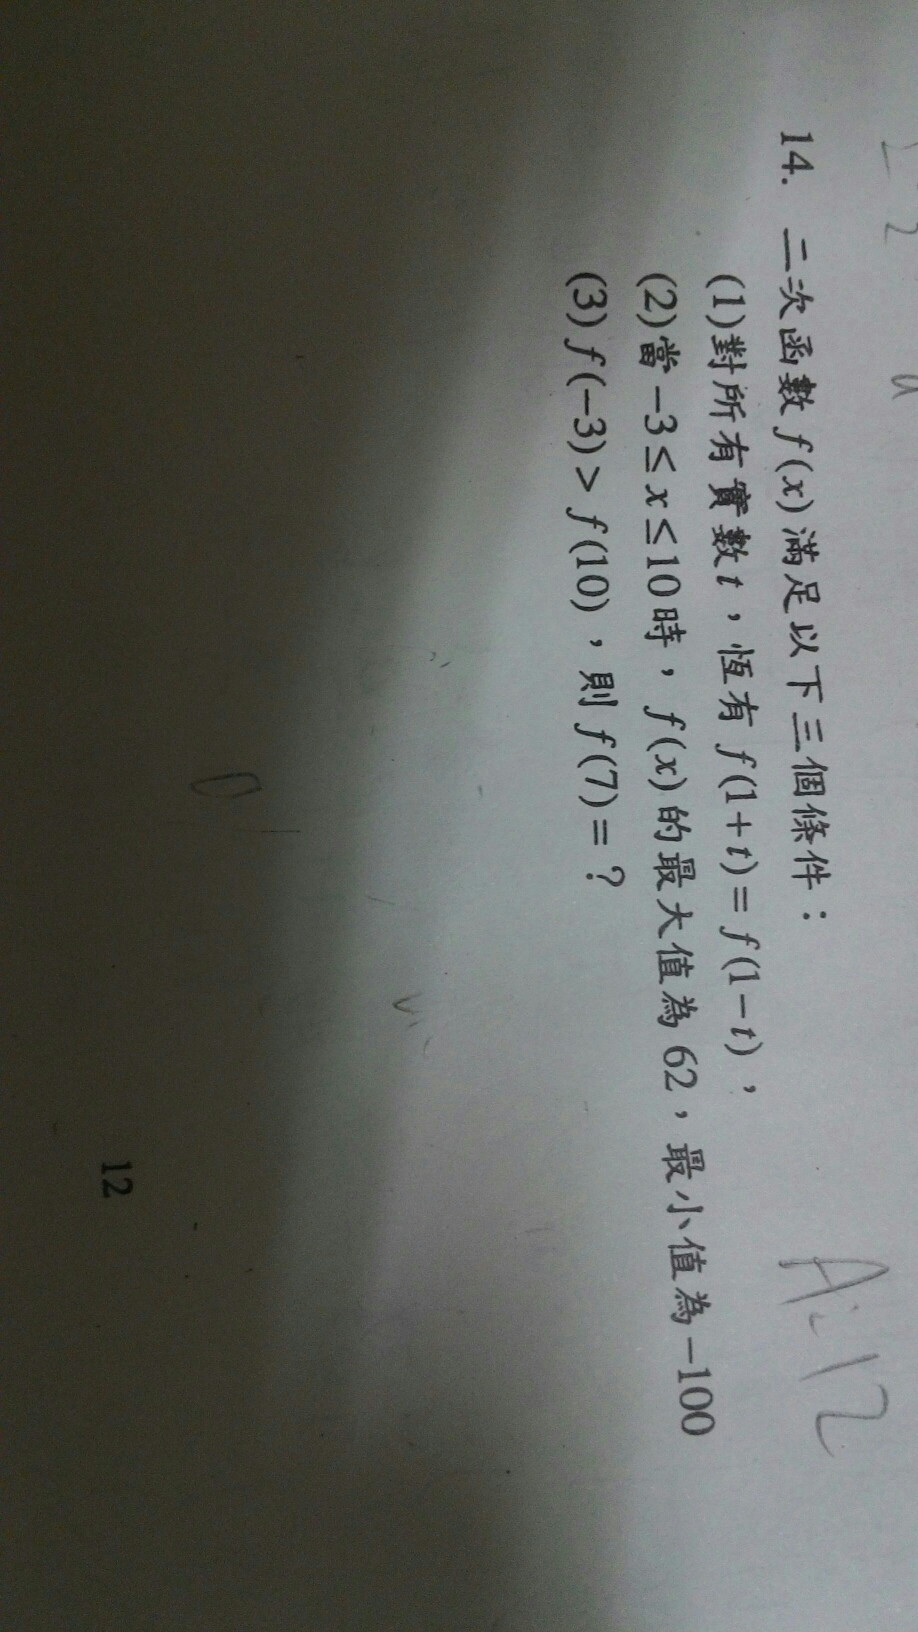 14. 二次函數 f(x) 滿足以下三個條件：
(1)對所有實數 t，恆有 f(1+t)=f(1−t)，
(2)當 −3≤x≤10 時，f(x) 的最大值為 62，最小值為 −100
(3) f(−3)>f(10)，則 f(7)=？
A:12
12